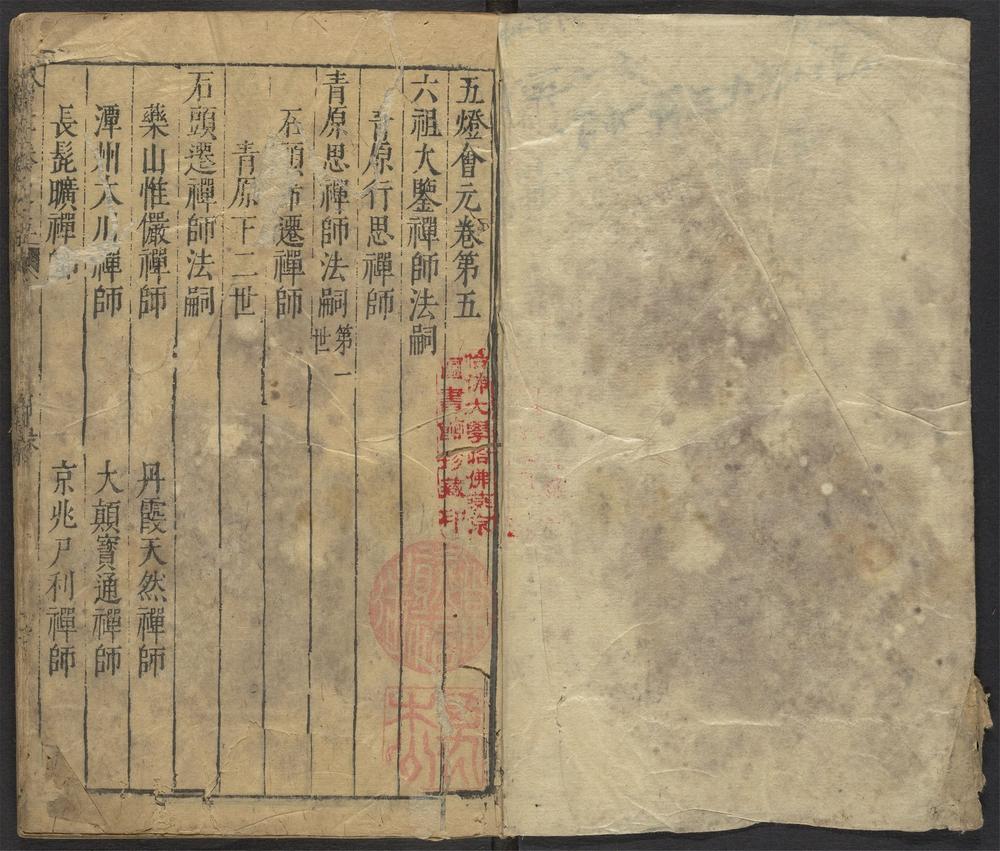 五燈會元卷第五
六祖大鑒禪師法嗣
青原行思禪師
青原思禪師法嗣第一世
石頭希遷禪師
青原下二世
石頭遷禪師法嗣
藥山惟儼禪師
丹霞天然禪師
潭州大川禪師
大顛寶通禪師
長髭曠禪師
京兆尸利禪師
哈佛大學哈佛燕京
圖書館珍藏印